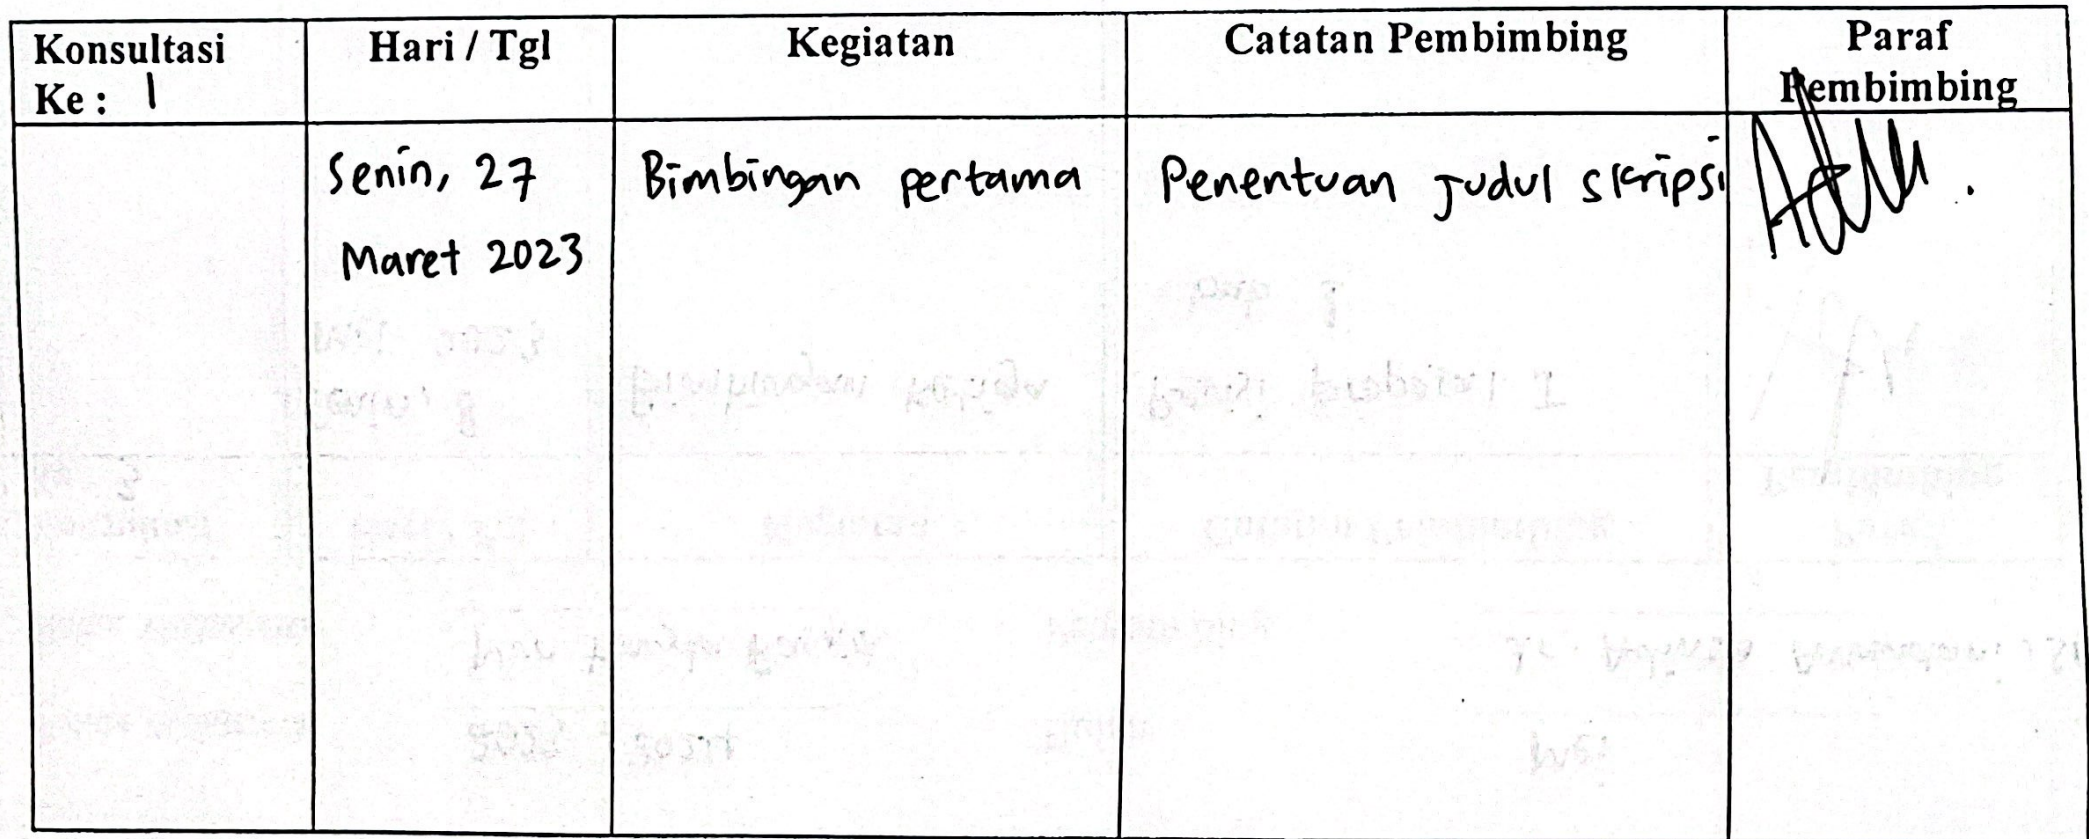 Konsultasi Ke : 1
Hari / Tgl
Kegiatan
Catatan Pembimbing
Paraf Pembimbing
Senin, 27 Maret 2023
Bimbingan pertama
Penentuan judul skripsi